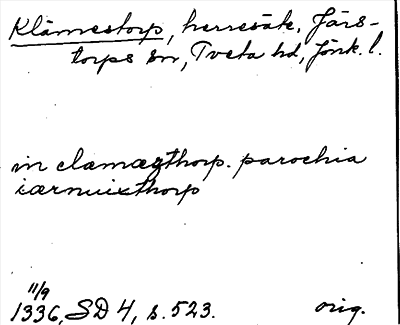 Klämmestorp, herresäte, Järs-
torps sn, Tveta hd, Jönk. l.
in clamæzthorp. parochia
iærnuixthorp
11/9
1336, SD 4, s. 523. orig.